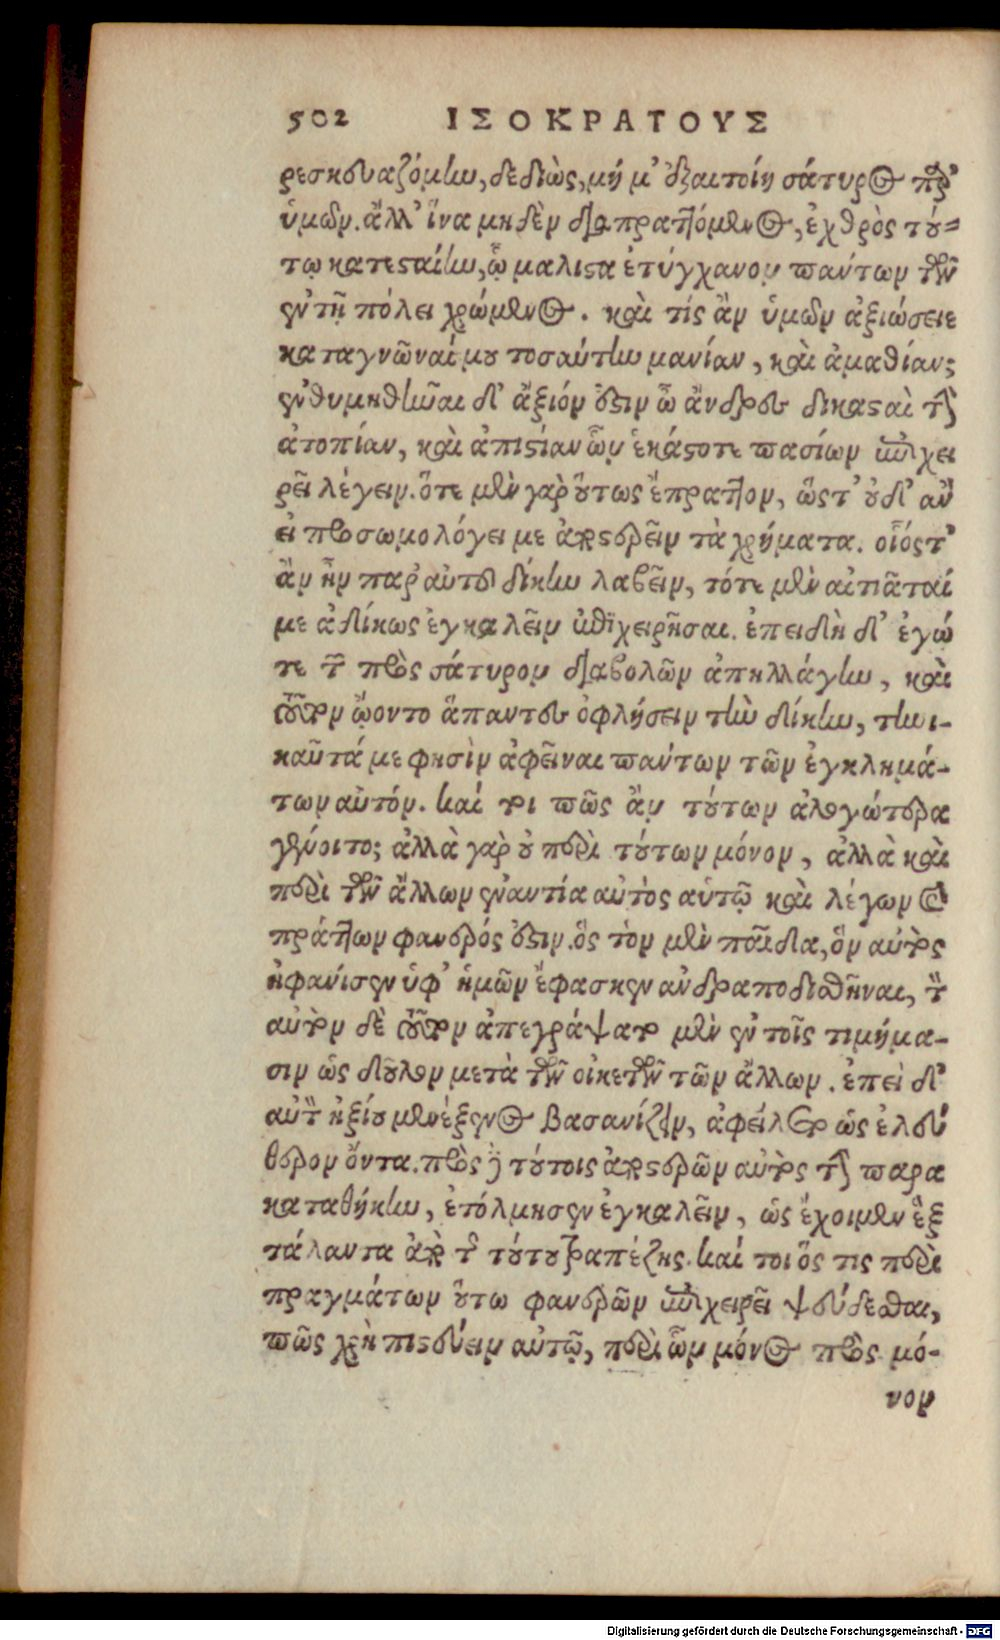 502 ΙΣΟΚΡΑΤΟΥΣ
ρεσκευαζόμην, δεδιὼς, μή μ' ἐξαιτοίη σάτυρος παρ'
ὑμῶν. ἀλλ' ἵνα μηδὲν διαπραττόμενος, ἐχθρὸς τού=
τῳ κατεσταίην, ᾧ μαλιστα ἐτύγχανον πάντων τῶν
ἐν τῇ πόλει χρώμενος. καὶ τίς ἂν ὑμῶν ἀξιώσειε
καταγνῶναί μου τοσαύτην μανίαν, καὶ ἀμαθίαν;
ἐνθυμηθῆναι δ' ἄξιόν ἐστιν ὦ ἄνδρες δικασταὶ τὴν
ἀτοπίαν, καὶ ἀπιστίαν ὧν ἑκάστοτε πασίων ἐπιχει
ρεῖ λέγειν. ὅτε μὲν γὰρ οὕτως ἔπραττον, ὥστ' οὐδ' ἂν
εἰ προσωμολόγει με ἀποστερεῖν τὰ χρήματα. οἷός τ'
ἂν ἦν παρ' αὐτοῦ δίκην λαβεῖν, τότε μὲν αἰτιᾶταί
με ἀδίκως ἐγκαλεῖν ἐπιχειρῆσαι. ἐπειδὴ δ' ἐγώ
τε τῶν πρὸς σάτυρον διαβολῶν ἀπηλλάγην, καὶ
τοῦτον ᾤοντο ἅπαντες ὀφλήσειν τὴν δίκην, τηνι-
καῦτά με φησὶν ἀφεῖναι πάντων τῶν ἐγκλημά-
των αὐτόν. καί τοι πῶς ἂν τούτων ἀλογώτερα
γένοιτο; ἀλλὰ γὰρ οὐ περὶ τούτων μόνον, ἀλλὰ καὶ
περὶ τῶν ἄλλων ἐναντία αὐτὸς αὑτῷ καὶ λέγων καὶ
πράττων φανερός ἐστιν. ὃς τὸν μὲν παῖδα, ὃν αὐτὸς
ἠφανίσεν ὑφ' ἡμῶν ἔφασκεν ανδραποδισθῆναι, τὸν
αὐτὸν δὲ τοῦτον ἀπεγράψατο μὲν ἐν τοῖς τιμήμα-
σιν ὡς δοῦλον μετὰ τῶν οἰκετῶν τῶν ἄλλων. ἐπεὶ δ'
αὐτὸν ἠξίου μενέξενος βασανίζειν, ἀφείλετο ὡς ἐλεύ
θερον ὄντα. πρὸς δὲ τούτοις ἀποστερῶν αὐτὸς τὴν παρα
καταθήκην, ἐτόλμησεν ἐγκαλεῖν, ὡς ἔχοιμεν ἓξ
τάλαντα ἀπὸ τῆς τούτου τραπέζης. καί τοι ὅς τις περὶ
πραγμάτων οὕτω φανερῶν ἐπιχειρεῖ ψεύδεσθαι,
πῶς χρὴ πιστεύειν αὐτῷ, περὶ ὧν μόνος πρὸς μό-
νον
Digitalisierung gefördert durch die Deutsche Forschungsgemeinschaft - DFG